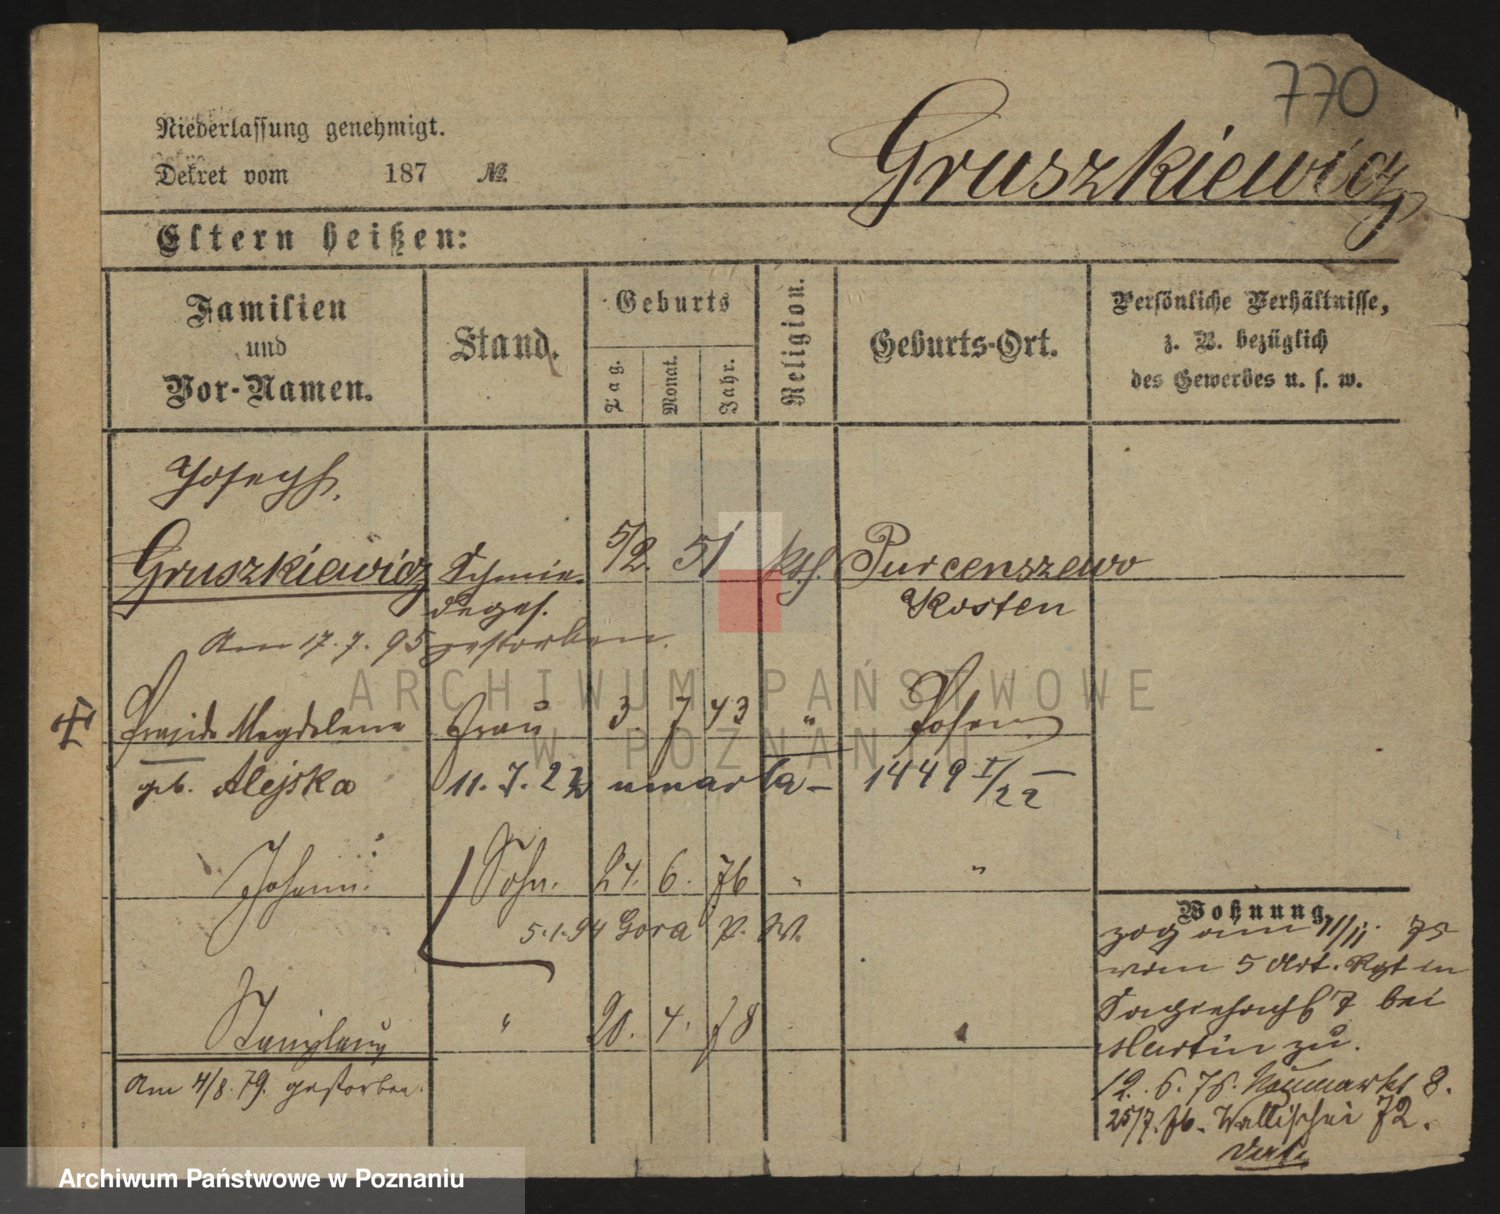 770
Gruszkiewicz
Niederlassung genehmigt.
Dekret vom 187 №
Eltern heißen:
Familien und Vor-Namen.
Stand.
Geburts
Tag. Monat. Jahr.
Religion.
Geburts-Ort.
Persönliche Verhältnisse, z. B. bezüglich des Gewerbes u. s. w.
Joseph
Gruszkiewicz Schmie- 5/2. 51 kth. Purcenszewo
deges. Kosten
Am 17. 7. 95 gestorben.
Magdalena Frau 3. 7 43 " Posen
geb. Alejska 11. 7. 22 umarła – 1449 I/22 –
Johann. Sohn. 24. 6. 76 " "
5.1.94 Gora p. W.
Stanislaus " 20. 4. 78
Am 4/8. 79. gestorben.
Wohnung.
zog am 11/11. 75
vom 5 Art. Rgt in
7 bei
Martin zu.
12. 6. 76. Neumarkt 8.
25/7. 76. Wallischei 72.
ARCHIWUM PAŃSTWOWE
W POZNANIU
Archiwum Państwowe w Poznaniu